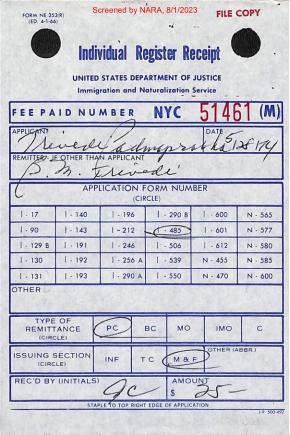 Screened by NARA, 8/1/2023
FORM NE 353(R)
(ED. 4-1-66)
FILE COPY
Individual Register Receipt
UNITED STATES DEPARTMENT OF JUSTICE
Immigration and Naturalization Service
FEE PAID NUMBER NYC 51461 (M)
APPLICANT DATE
Trivedi 5/28/74
REMITTER, IF OTHER THAN APPLICANT
P. M. Trivedi
APPLICATION FORM NUMBER
(CIRCLE)
I - 17 I - 140 I - 196 I - 290 B I - 600 N - 565
I - 90 I - 143 I - 212 I - 485 I - 601 N - 577
I - 129 B I - 191 I - 246 I - 506 I - 612 N - 580
I - 130 I - 192 I - 256 A I - 539 N - 455 N - 585
I - 131 I - 193 I - 290 A I - 550 N - 470 N - 600
OTHER
TYPE OF REMITTANCE (CIRCLE) PC BC MO IMO C
ISSUING SECTION (CIRCLE) INF T C M & F OTHER (ABBR.)
REC'D BY (INITIALS) AMOUNT
$ 25-
STAPLE TO TOP RIGHT EDGE OF APPLICATION